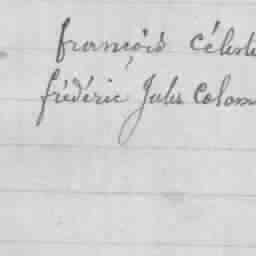 françois Céleste
frédéric Jules Colom